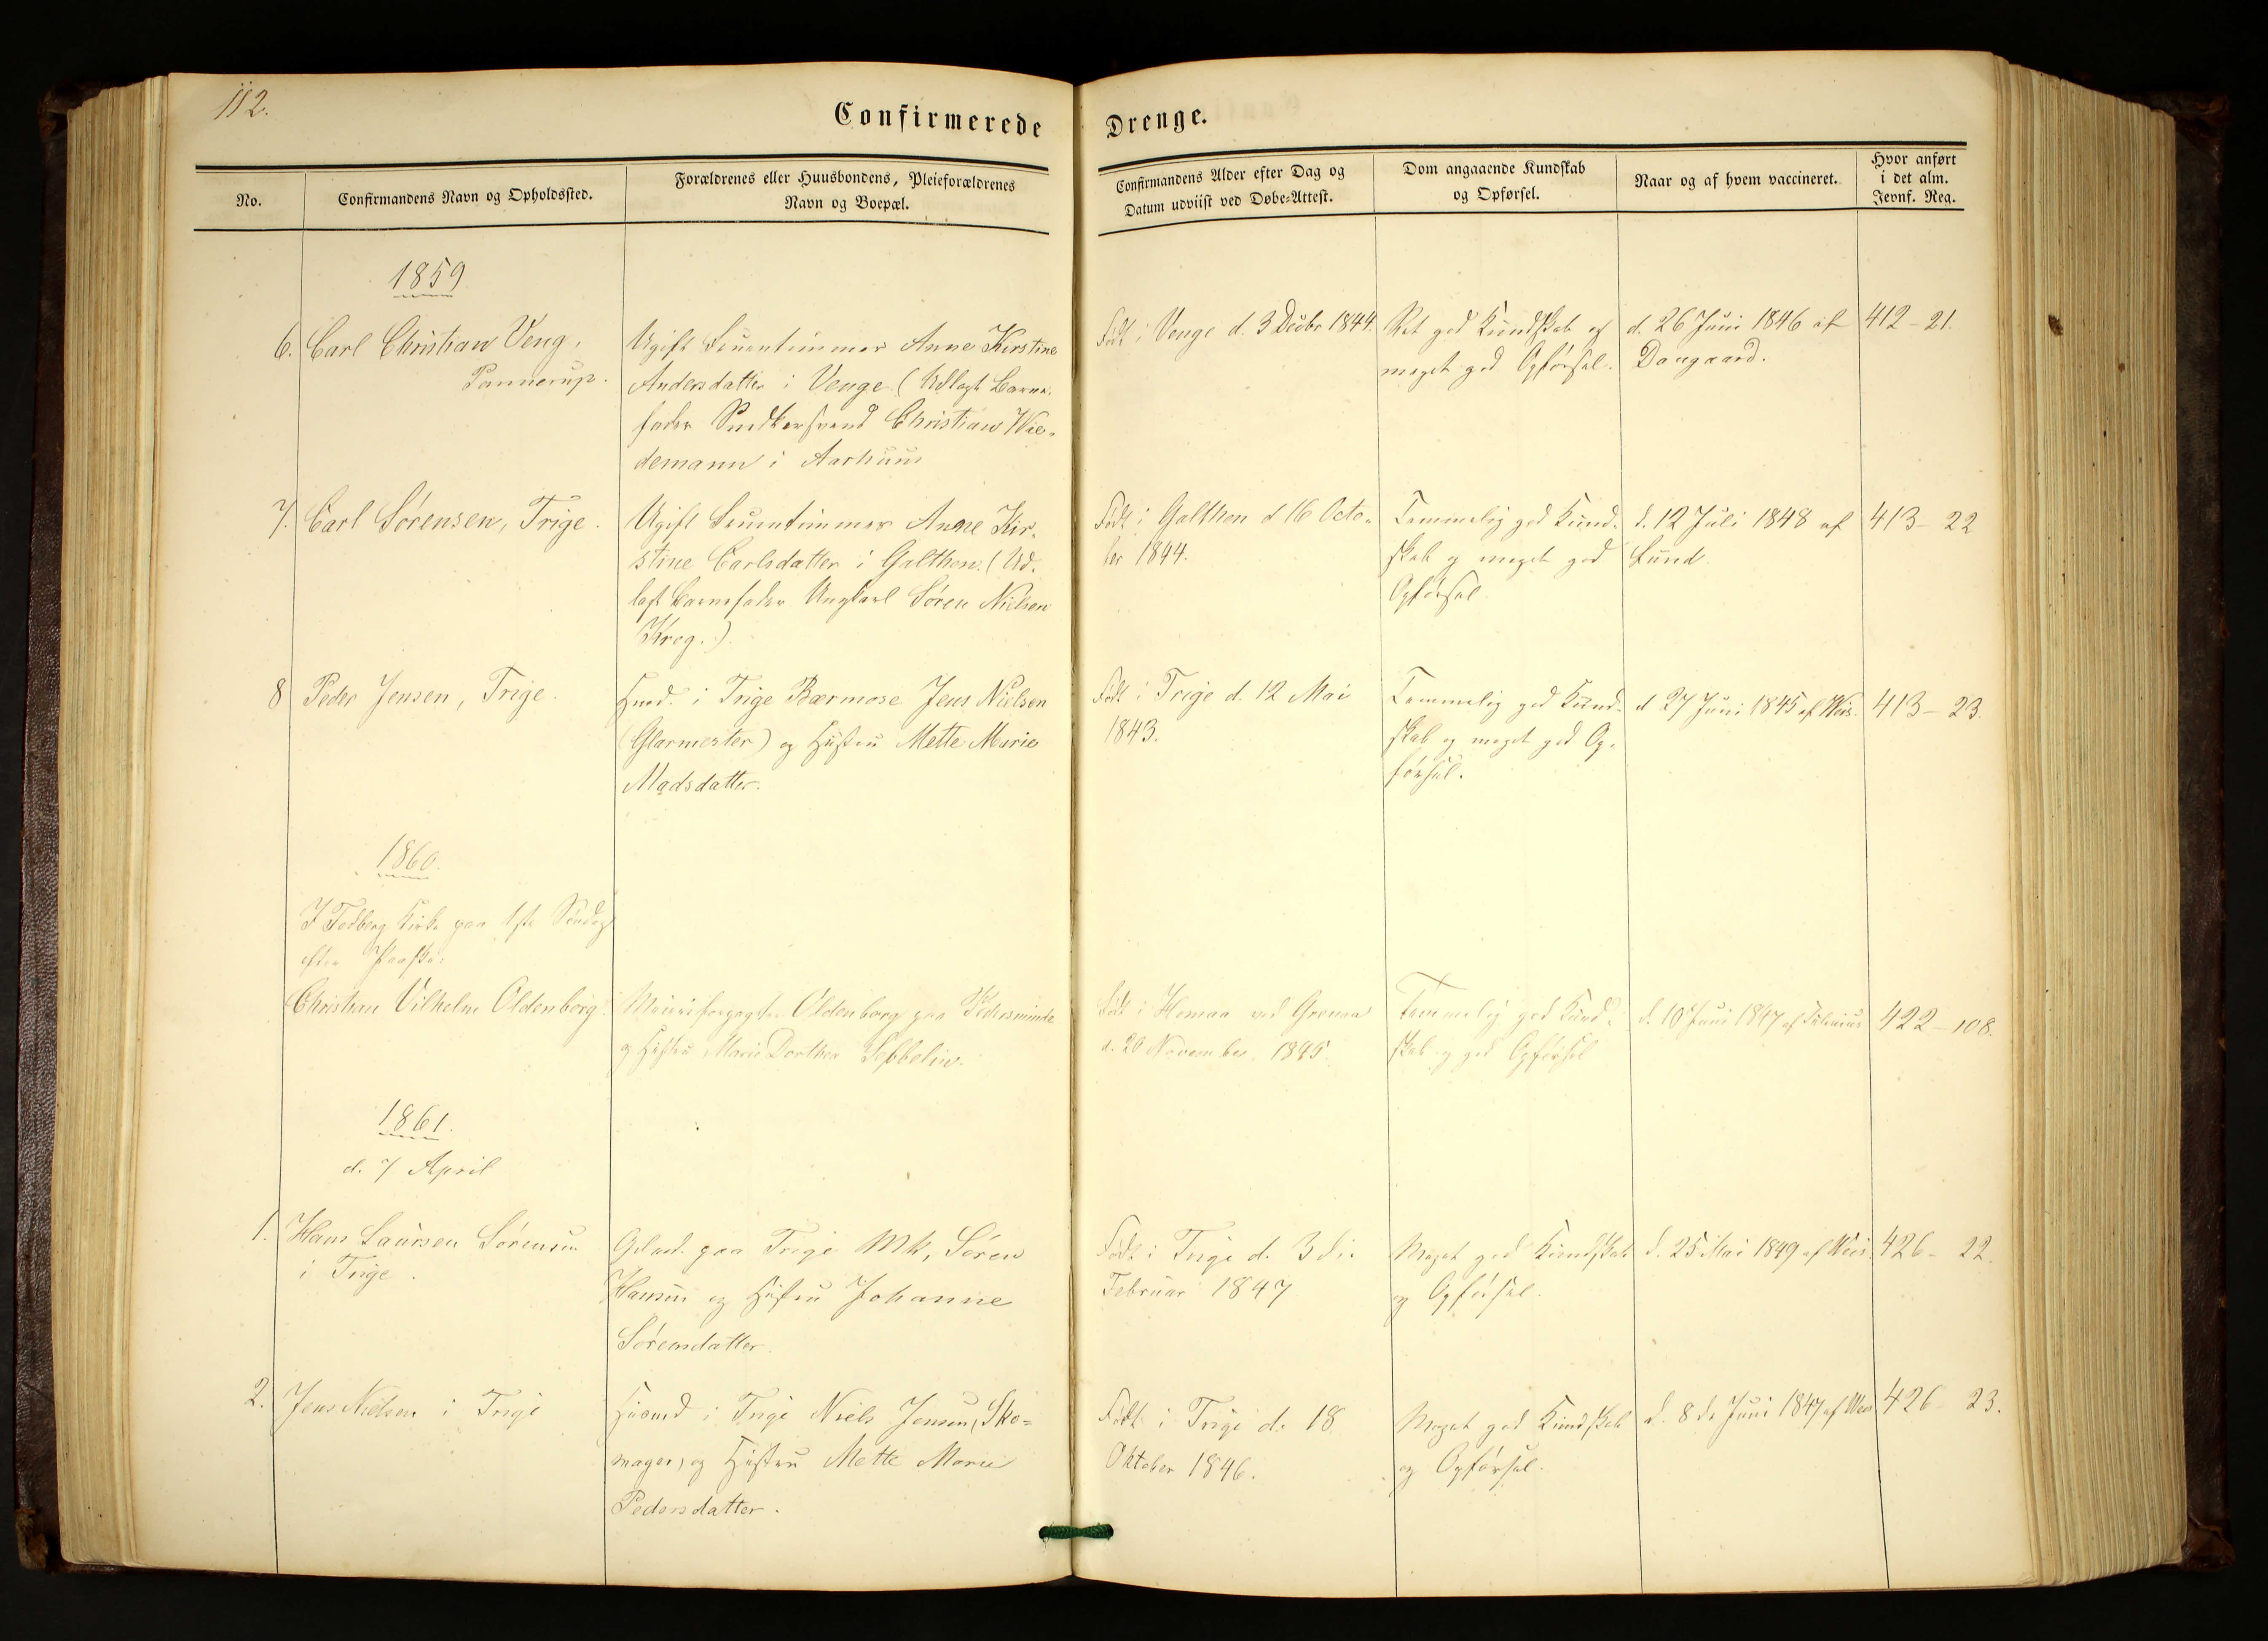 112.
Confirmerede Drenge.
No.
Confirmandens Navn og Opholdssted.
Forældrenes eller Huusbondens, Pleieforældrenes
Navn og Boepæl.
Confirmandens Alder efter Dag og
Datum udviist ved Døbe-Attest.
Dom angaaende Kundskab
og Opførsel.
Naar og af hvem vaccineret.
Hvor anført
i det alm.
Jevnf. Reg.
1859
6. Carl Christian Veng,
Pannerup.
Ugift Fruentimmer Anne Kirstine
Andersdatter i Venge (Udlagt Barne-
fader Snedkersvend Christian Wie-
demann i Aarhuus
Født i Venge d. 3 Decbr 1844.
Ret god Kundskab og
meget god Opførsel.
d. 26 Juni 1846 af
Daugaard.
412 - 21.
7. Carl Sørensen, Trige.
Ugift Fruentimmer Anne Kir-
stine Carlsdatter i Galthen. (Ud-
lagt Barnefader Ungkarl Søren Nielsen
Krog.)
Født i Galthen d 16 Octo-
ber 1844.
Temmelig god Kund-
skab og meget god
Opførsel.
d. 12 Juli 1848 af
Lund.
413 - 22
8 Peder Jensen, Trige.
Huusmd. i Trige Bærmose Jens Nielsen
(Glarmester) og Hustru Mette Marie
Madsdatter.
Født i Trige d. 12 Mai
1843.
Temmelig god Kund-
skab og meget god Op-
førsel.
d 27 Juni 1845 af Weis.
413 - 23.
1860.
I Fodberg Kirke paa 1ste Søndag
efter Paaske:
Christian Vilhelm Oldenborg.
Meieriforpagter Oldenborg paa Pedersminde
og Hustru Marie Dorthea Sebbelin.
Født i Homaa ved Grenaa
d. 20 November 1845.
Temmelig god Kund-
skab og god Opførsel
d. 10 Juni 1847 af
422 - 108.
1861.
d. 7 April
1. Hans Laursen Sørensen
i Trige.
Gdmd. paa Trige Mk, Søren
Hansen og Hustru Johanne
Sørensdatter.
Født i Trige d. 3die
Februar 1847
Meget god Kundskab
og Opførsel.
d. 25 Mai 1849 af Weis.
426 - 22.
2. Jens Nielsen i Trige
Huusmd i Trige Niels Jensen, Sko-
mager, og Hustru Mette Marie
Pedersdatter.
Født i Trige d. 18
Oktober 1846.
Meget god Kundskab
og Opførsel.
d. 8de Juni 1847 af Weis
426 - 23.